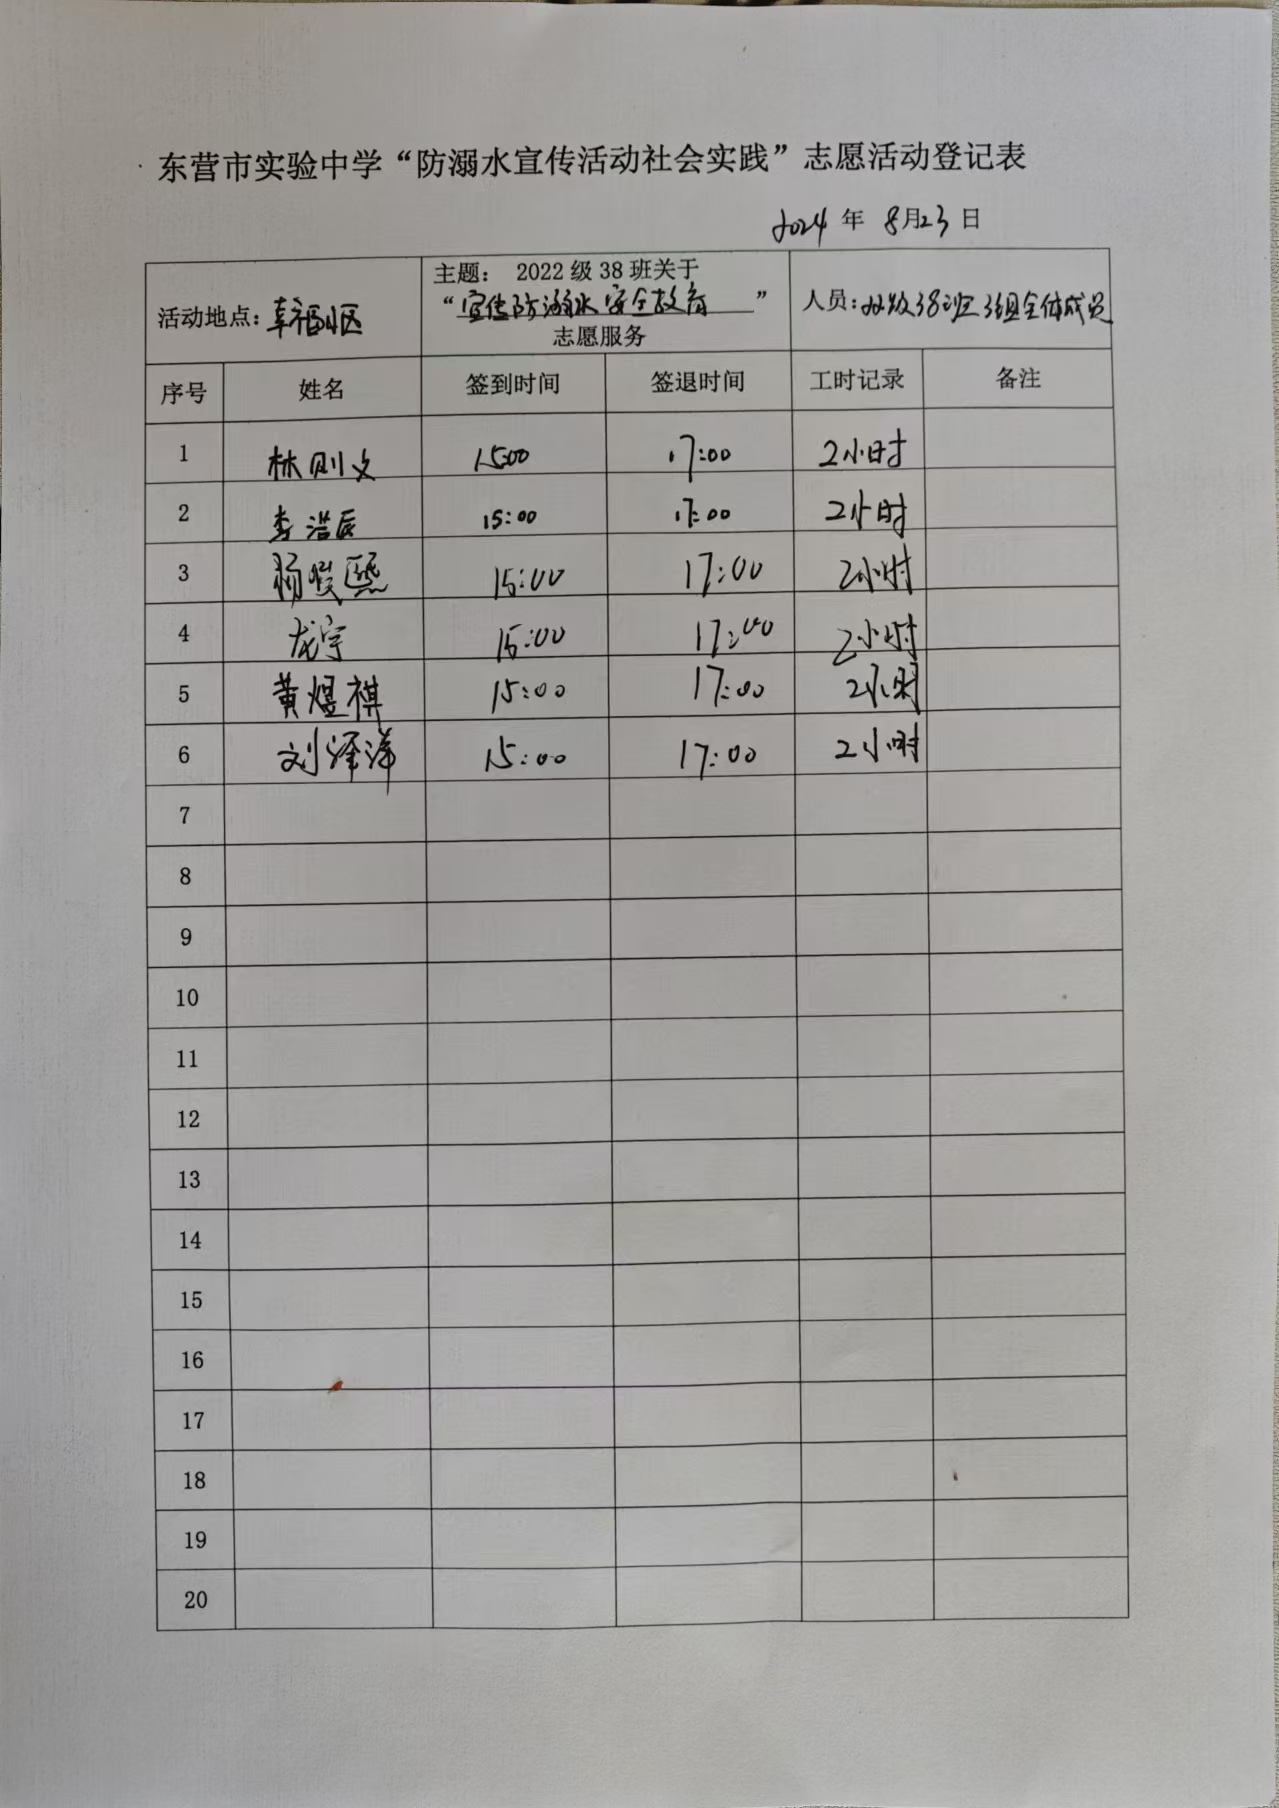 东营市实验中学“防溺水宣传活动社会实践”志愿活动登记表
2024 年 8月23 日
活动地点:幸福小区
主题： 2022 级 38 班关于
“宣传防溺水安全教育”
志愿服务
人员: 22级38班3组全体成员
序号 姓名 签到时间 签退时间 工时记录 备注
1 林则文 15:00 17:00 2小时
2 李浩辰 15:00 17:00 2小时
3 杨骏熙 15:00 17:00 2小时
4 龙宇 15:00 17:00 2小时
5 黄煜祺 15:00 17:00 2小时
6 刘泽洋 15:00 17:00 2小时
7
8
9
10
11
12
13
14
15
16
17
18
19
20